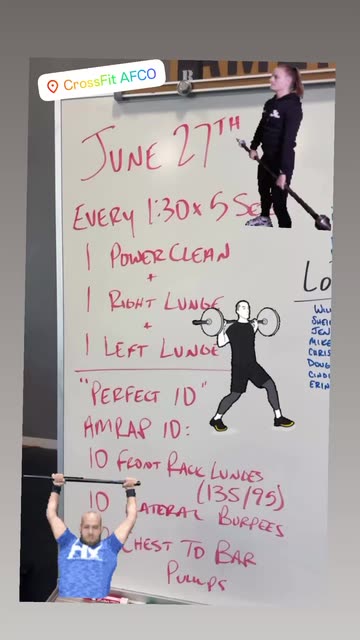 CrossFit AFCO
JUNE 27TH
EVERY 1:30 x 5 SE
1 POWER CLEAN
+
1 RIGHT LUNGE
+
1 LEFT LUNGE
"PERFECT 10"
AMRAP 10:
10 FRONT RACK LUNGES
(135/95)
10 LATERAL BURPEES
CHEST TO BAR
PULLUPS
LO
WIL
SHEI
JEN
MIKE
CHRIS
DOUG
CINDI
ERIN